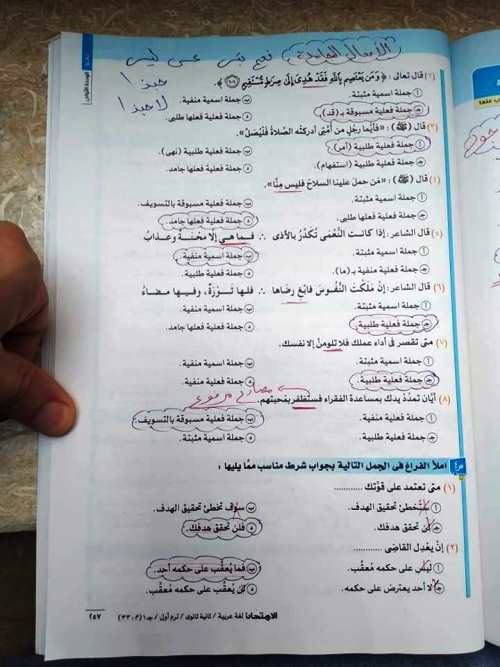 الأفعال الجامدة: نعم بئس عسى ليس
حبذا
لا حبذا
(٢) قال تعالى: ﴿وَمَن يَعْتَصِم بِاللَّهِ فَقَدْ هُدِيَ إِلَىٰ صِرَاطٍ مُّسْتَقِيمٍ﴾.
أ جملة اسمية مثبتة. ب جملة اسمية منفية.
ج جملة فعلية مسبوقة بـ(قد). د جملة فعلية فعلها طلبي.
(٣) قال (ﷺ): «فأيُّما رجلٍ من أمَّتى أدركتْه الصلاةُ فَلْيُصَلِّ».
أ جملة فعلية طلبية (أمر). ب جملة فعلية طلبية (نهى).
ج جملة فعلية طلبية (استفهام). د جملة اسمية منفية.
(٤) قال (ﷺ): «مَن حملَ علينا السلاحَ فليس مِنَّا».
أ جملة اسمية مثبتة. ب جملة فعلية مسبوقة بالتسويف.
ج جملة فعلية فعلها طلبى. د جملة فعلية فعلها جامد.
(٥) قال الشاعر: إذا كانت النُّعْمَى تُكَدَّرُ بالأذى ∴ فـما هي إلا محْنَـةٌ وعـذابُ
أ جملة اسمية مثبتة. ب جملة اسمية منفية.
ج جملة فعلية منفية بـ(ما). د جملة فعلية طلبية.
(٦) قال الشاعر: إنْ مَلَكْتَ النُّفُوسَ فابْغِ رِضَاها ∴ فلها ثَـوْرَةٌ، وفـيـها مَضـاءُ
أ جملة اسمية مثبتة. ب جملة اسمية منفية.
ج جملة فعلية طلبية. د جملة فعلية فعلها جامد.
(٧) متى تقصر فى أداء عملك فلا تلومنْ إلا نفسك.
أ جملة اسمية مثبتة. ب جملة اسمية منفية.
ج جملة فعلية طلبية. د جملة فعلية منفية.
مضارع مرفوع
(٨) أيَّان تمدُدْ يدك بمساعدة الفقراء فستظفر بمَحبتهم.
أ جملة فعلية منفية. ب جملة فعلية مسبوقة بالتسويف.
ج جملة فعلية طلبية. د جملة اسمية مثبتة.
املأ الفراغ فى الجمل التالية بجواب شرط مناسب ممَّا يليها:
(١) متى تعتمد على قوَّتك ............
أ ستُخطئ تحقيق الهدف. ب سوف تخطئ تحقيق الهدف.
ج لن تحقق هدفك. د فلن تحقق هدفك.
(٢) إنْ يعْدِل القاضِى ............
أ ليس على حكمه مُعقِّب. ب فما يُعقِّب على حكمه أحد.
ج لا أحد يعترض على حكمه. د لن يُعقِّب على حكمه مُعقِّب.
الامتحان لغة عربية / ثانية ثانوى / ترم أول / جـ١
٢٥٧